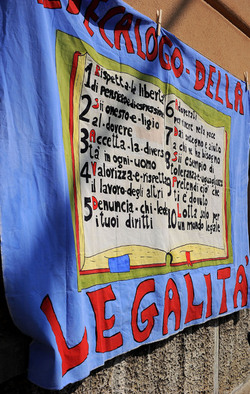 DECALOGO-DELLA
1 Rispetta-le libertà
di pensiero e di espressione
2 Sii onesto-e-ligio
al-dovere
3 Accetta-la-diversi
tà in ogni-uomo
4 Valorizza-e-rispetta
il lavoro-degli altri
5 Denuncia-chi-lede
i tuoi diritti
6
nella pace
7 Dai sostegno e aiuto
a chi ne ha bisogno
8 Sii esempio di
tolleranza e uguaglianza
9 Pretendi ciò che
ti è dovuto
10 Lotta solo per
un mondo legale
LEGALITÀ